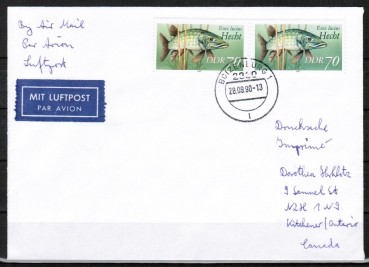 By Air Mail
Par Avion
Luftpost
MIT LUFTPOST
PAR AVION
Esox lucius
Hecht
DDR 70
Esox lucius
Hecht
DDR 70
BOIZENBURG 1
2830
28.09.90-13
Drucksache
Imprimé
Dorothea
9 Samuel St
N2H 1N9
Kitchener/Ontario
Canada